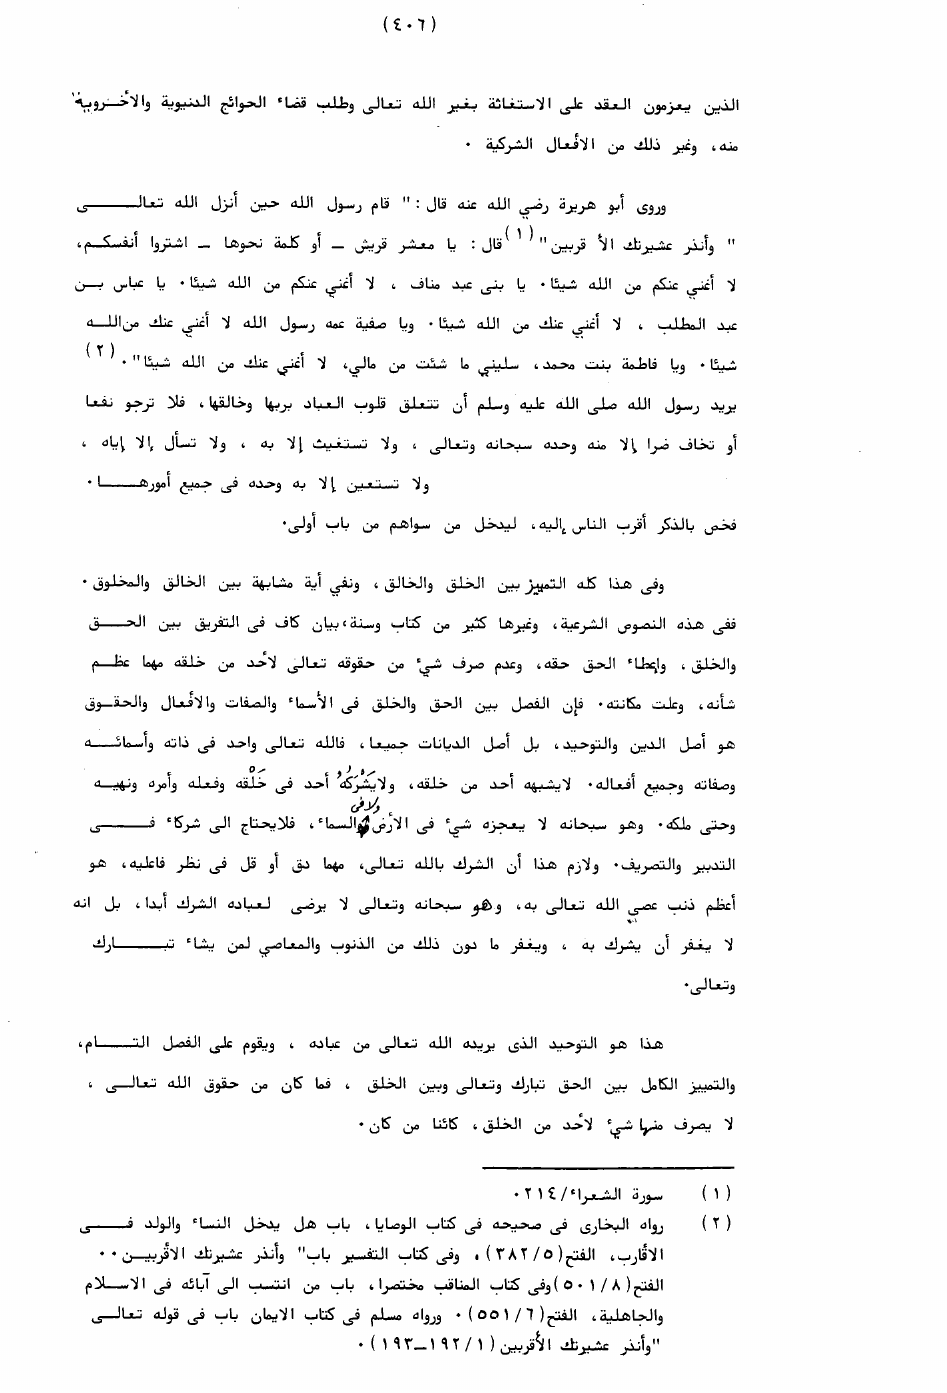 (٤٠٦)
الذين يعزمون العقد على الاستغاثة بغير الله تعالى وطلب قضاء الحوائج الدنيوية والأخروية
منه، وغير ذلك من الأفعال الشركية ٠
وروى أبو هريرة رضي الله عنه قال: " قام رسول الله حين أنزل الله تعالى
" وأنذر عشيرتك الأقربين"(١) قال: يا معشر قريش - أو كلمة نحوها - اشتروا أنفسكم،
لا أغني عنكم من الله شيئا٠ يا بنى عبد مناف ، لا أغني عنكم من الله شيئا٠ يا عباس بن
عبد المطلب ، لا أغني عنك من الله شيئا٠ ويا صفية عمه رسول الله لا أغني عنك من الله
شيئا٠ ويا فاطمة بنت محمد، سليني ما شئت من مالي، لا أغني عنك من الله شيئا"٠(٢)
يريد رسول الله صلى الله عليه وسلم أن تتعلق قلوب العباد بربها وخالقها، فلا ترجو نفعا
أو تخاف ضرا إلا منه وحده سبحانه وتعالى ، ولا تستغيث إلا به ، ولا تسأل إلا إياه ،
ولا تستعين إلا به وحده فى جميع أمورها٠
فخص بالذكر أقرب الناس إليه، ليدخل من سواهم من باب أولى٠
وفى هذا كله التمييز بين الخلق والخالق، ونفي أية مشابهة بين الخالق والمخلوق٠
ففى هذه النصوص الشرعية، وغيرها كثير من كتاب وسنة، بيان كاف فى التفريق بين الحق
والخلق، وإعطاء الحق حقه، وعدم صرف شيء من حقوقه تعالى لأحد من خلقه مهما عظم
شأنه، وعلت مكانته٠ فإن الفصل بين الحق والخلق فى الأسماء والصفات والأفعال والحقوق
هو أصل الدين والتوحيد، بل أصل الديانات جميعا، فالله تعالى واحد فى ذاته وأسمائه
وصفاته وجميع أفعاله٠ لايشبهه أحد من خلقه، ولايَشْرَكُه أحد فى خَلْقه وفعله وأمره ونهيه
وحتى ملكه٠ وهو سبحانه لا يعجزه شيء فى الأرض ولا فى السماء، فلايحتاج الى شركاء فى
التدبير والتصريف٠ ولازم هذا أن الشرك بالله تعالى، مهما دق أو قل فى نظر فاعليه، هو
أعظم ذنب عصي الله تعالى به، وهو سبحانه وتعالى لا يرضى لعباده الشرك أبدا، بل انه
لا يغفر أن يشرك به ، ويغفر ما دون ذلك من الذنوب والمعاصي لمن يشاء تبارك
وتعالى٠
هذا هو التوحيد الذى يريده الله تعالى من عباده ، ويقوم على الفصل التام،
والتمييز الكامل بين الحق تبارك وتعالى وبين الخلق ، فما كان من حقوق الله تعالى ،
لا يصرف منها شيء لأحد من الخلق، كائنا من كان٠
(١) سورة الشعراء/٢١٤٠
(٢) رواه البخارى فى صحيحه فى كتاب الوصايا، باب هل يدخل النساء والولد فى
الأقارب، الفتح(٣٨٢/٥)، وفى كتاب التفسير باب" وأنذر عشيرتك الأقربين٠٠
الفتح(٥٠١/٨)وفى كتاب المناقب مختصرا، باب من انتسب الى آبائه فى الاسلام
والجاهلية، الفتح(٥٥١/٦)٠ ورواه مسلم فى كتاب الايمان باب فى قوله تعالى
"وأنذر عشيرتك الأقربين(١٩٢/١-١٩٣)٠